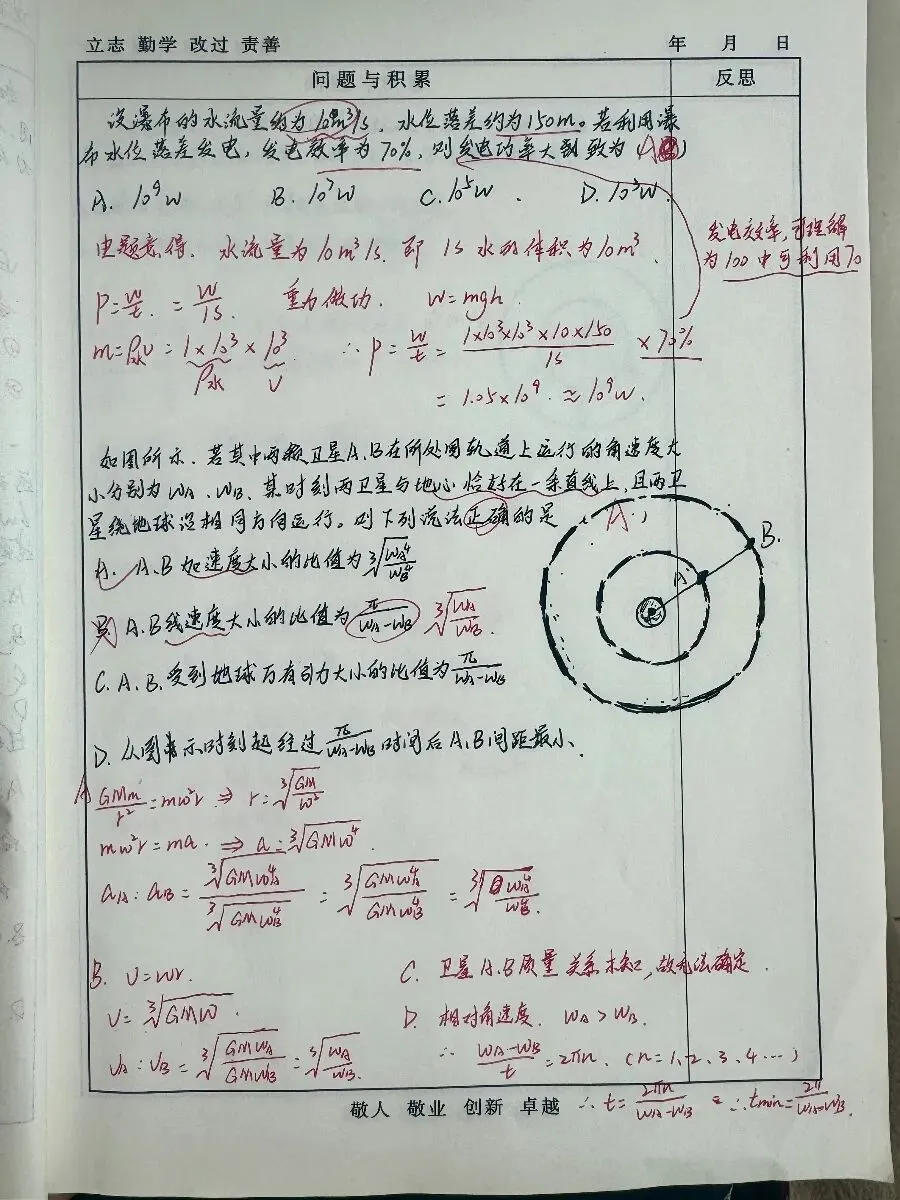 立志 勤学 改过 责善 年 月 日
问题与积累 反思
设瀑布的水流量约为10³m³/s,水位落差约为150m。若利用瀑
布水位落差发电,发电效率为70%,则发电功率大致为(A)
A. 10⁹W B. 10⁷W C. 10⁵W . D. 10³W.
由题意得,水流量为10m³/s.即 1S 水的体积为10m³.
发电效率,可理解
为100中可利用70
P=W/t. =W/1S. 重力做功. W=mgh.
m=ρ水V=1×10³×10³ ∴P=W/t=1×10³×10³×10×150/1S ×70%
ρ水 V
=1.05×10⁹.≈10⁹W.
如图所示.若其中两颗卫星A、B在所处圆轨道上运行的角速度大
小分别为ωA、ωB、某时刻两卫星与地心恰好在一条直线上,且两卫
星绕地球沿相同方向运行。则下列说法正确的是(A)
A. A、B加速度大小的比值为∛(ωA⁴/ωB⁴)
B. A、B线速度大小的比值为π/(ωA-ωB) ∛(ωA/ωB).
C. A、B.受到地球万有引力大小的比值为π/(ωA-ωB)
D. 从图示时刻起经过π/(ωA-ωB)时间后A、B间距最小.
A B.
A GMm/r²=mω²r. ⇒ r=∛(GM/ω²)
mω²r=ma. ⇒ a=∛(GMω⁴).
aA:aB=∛(GMωA⁴)/∛(GMωB⁴)=∛(GMωA⁴/GMωB⁴)=∛(ωA⁴/ωB⁴).
B. V=ωr.
V=∛(GMω).
VA:VB=∛(GMωA/GMωB)=∛(ωA/ωB).
C. 卫星A、B质量关系未知,故无法确定.
D. 相对角速度. ωA>ωB.
∴ (ωA-ωB)/t=2πn. (n=1、2、3、4…)
敬人 敬业 创新 卓越 ∴t=2πn/(ωA-ωB) ∴tmin=2π/(ωA-ωB).